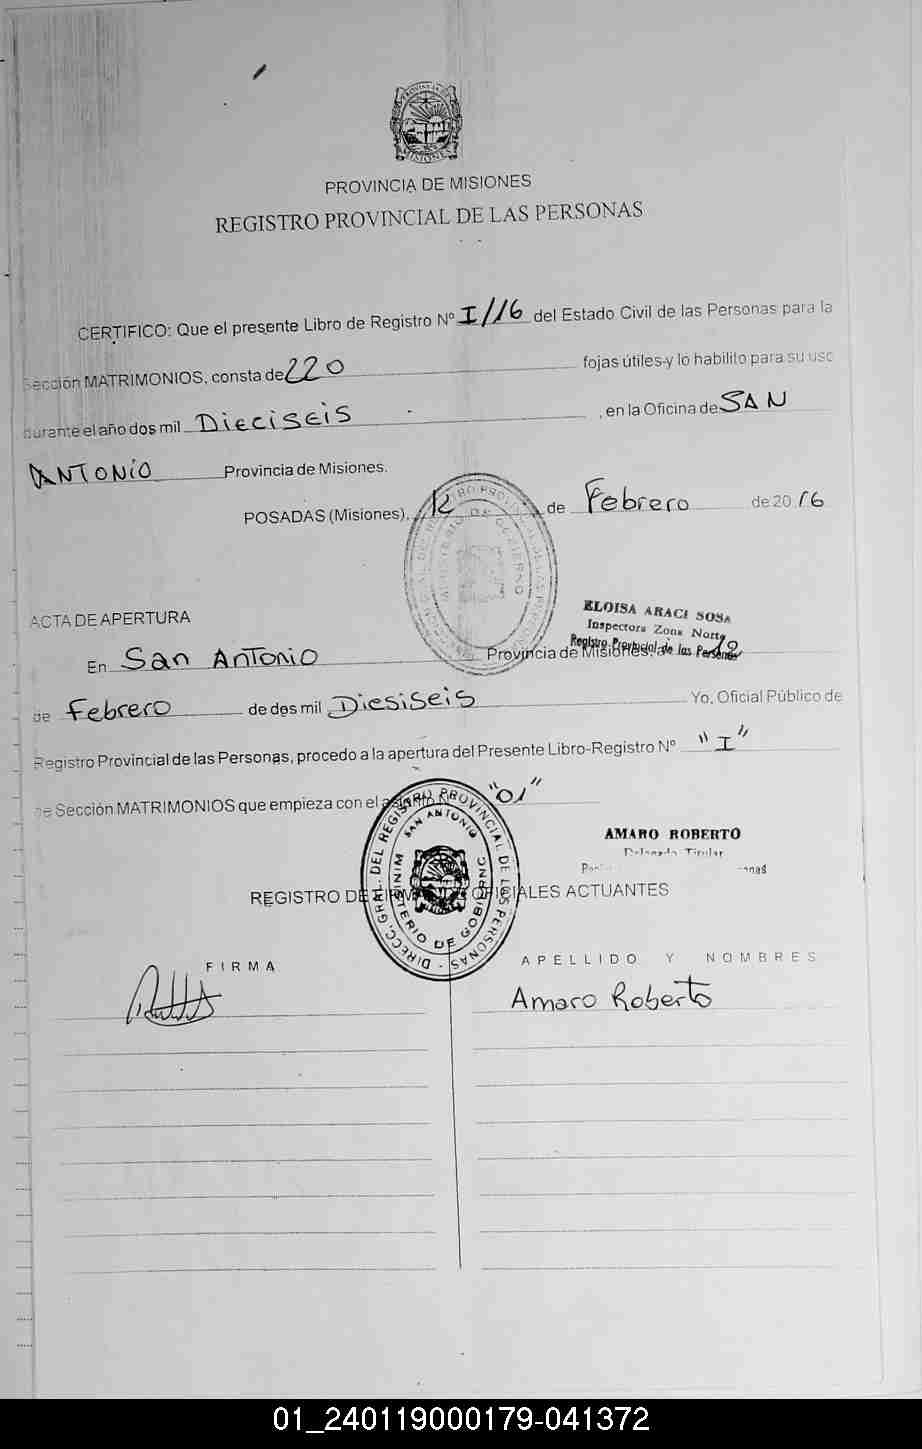 PROVINCIA DE MISIONES
REGISTRO PROVINCIAL DE LAS PERSONAS
CERTIFICO: Que el presente Libro de Registro Nº I/16 del Estado Civil de las Personas para la
Sección MATRIMONIOS, consta de 220 fojas útiles y lo habilito para su uso
durante el año dos mil Dieciseis, en la Oficina de SAN
ANTONIO Provincia de Misiones.
POSADAS (Misiones), 12 de Febrero de 2016
ELOISA ARACI SOSA
Inspectora Zona Norte
Registro Provincial de las Personas
ACTA DE APERTURA
En San Antonio Provincia de Misiones, a 12
de Febrero de dos mil Diesiseis Yo, Oficial Público de
Registro Provincial de las Personas, procedo a la apertura del Presente Libro-Registro Nº "I"
de Sección MATRIMONIOS que empieza con el "01"
DIRECC. GRAL. DEL REGISTRO PROVINCIAL DE LAS PERSONAS
SAN ANTONIO
MINISTERIO DE GOBIERNO
AMARO ROBERTO
Delegado Titular
REGISTRO DE OFICIALES ACTUANTES
FIRMA APELLIDO Y NOMBRES
Amaro Roberto
01_240119000179-041372